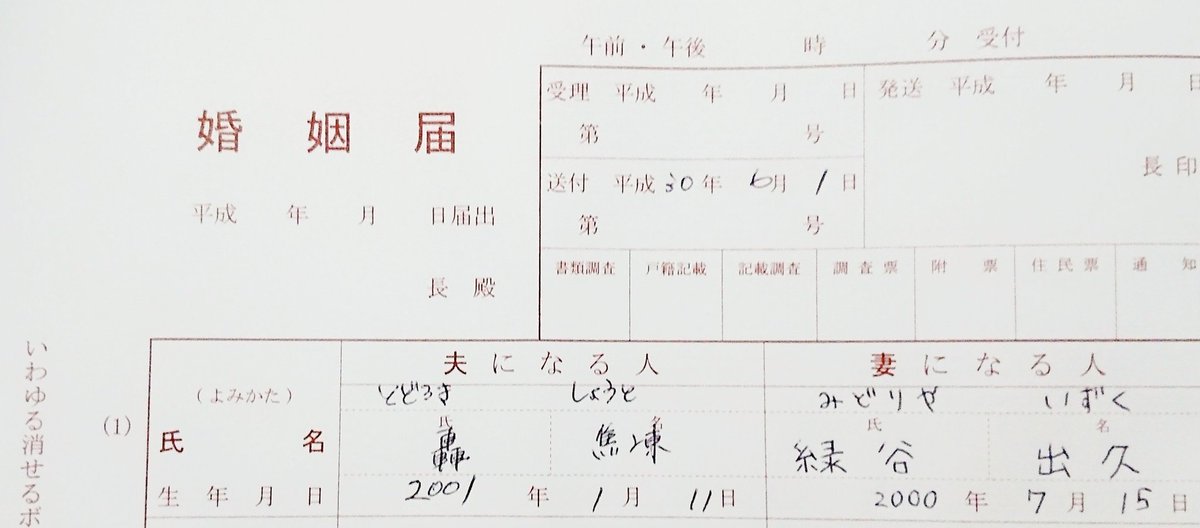 午前・午後 時 分 受付
婚姻届
平成 年 月 日届出
長殿
受理 平成 年 月 日
第 号
送付 平成30年 6月 1日
第 号
発送 平成 年 月 日
長印
書類調査 戸籍記載 記載調査 調査票 附票 住民票 通知
いわゆる消せるボ
(1)
夫になる人 妻になる人
(よみかた) とどろき しょうと みどりや いずく
氏 名 氏 名
氏名 轟 焦凍 緑谷 出久
生年月日 2001年 1月 11日 2000年 7月 15日